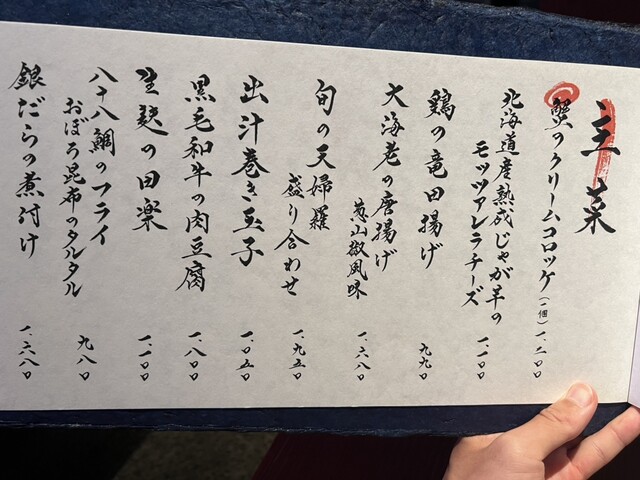 主菜
蟹のクリームコロッケ（一個）一、二〇〇
北海道産熟成じゃが芋の
モッツアレラチーズ 一、一〇〇
鶏の竜田揚げ 九九〇
大海老の唐揚げ
黄山椒風味 一、六八〇
旬の天婦羅
盛り合わせ 一、九五〇
出汁巻き玉子 一、〇五〇
黒毛和牛の肉豆腐 一、八〇〇
生麩の田楽 一、一〇〇
八十八鯛のフライ
おぼろ昆布のタルタル 九八〇
銀だらの煮付け 一、六八〇